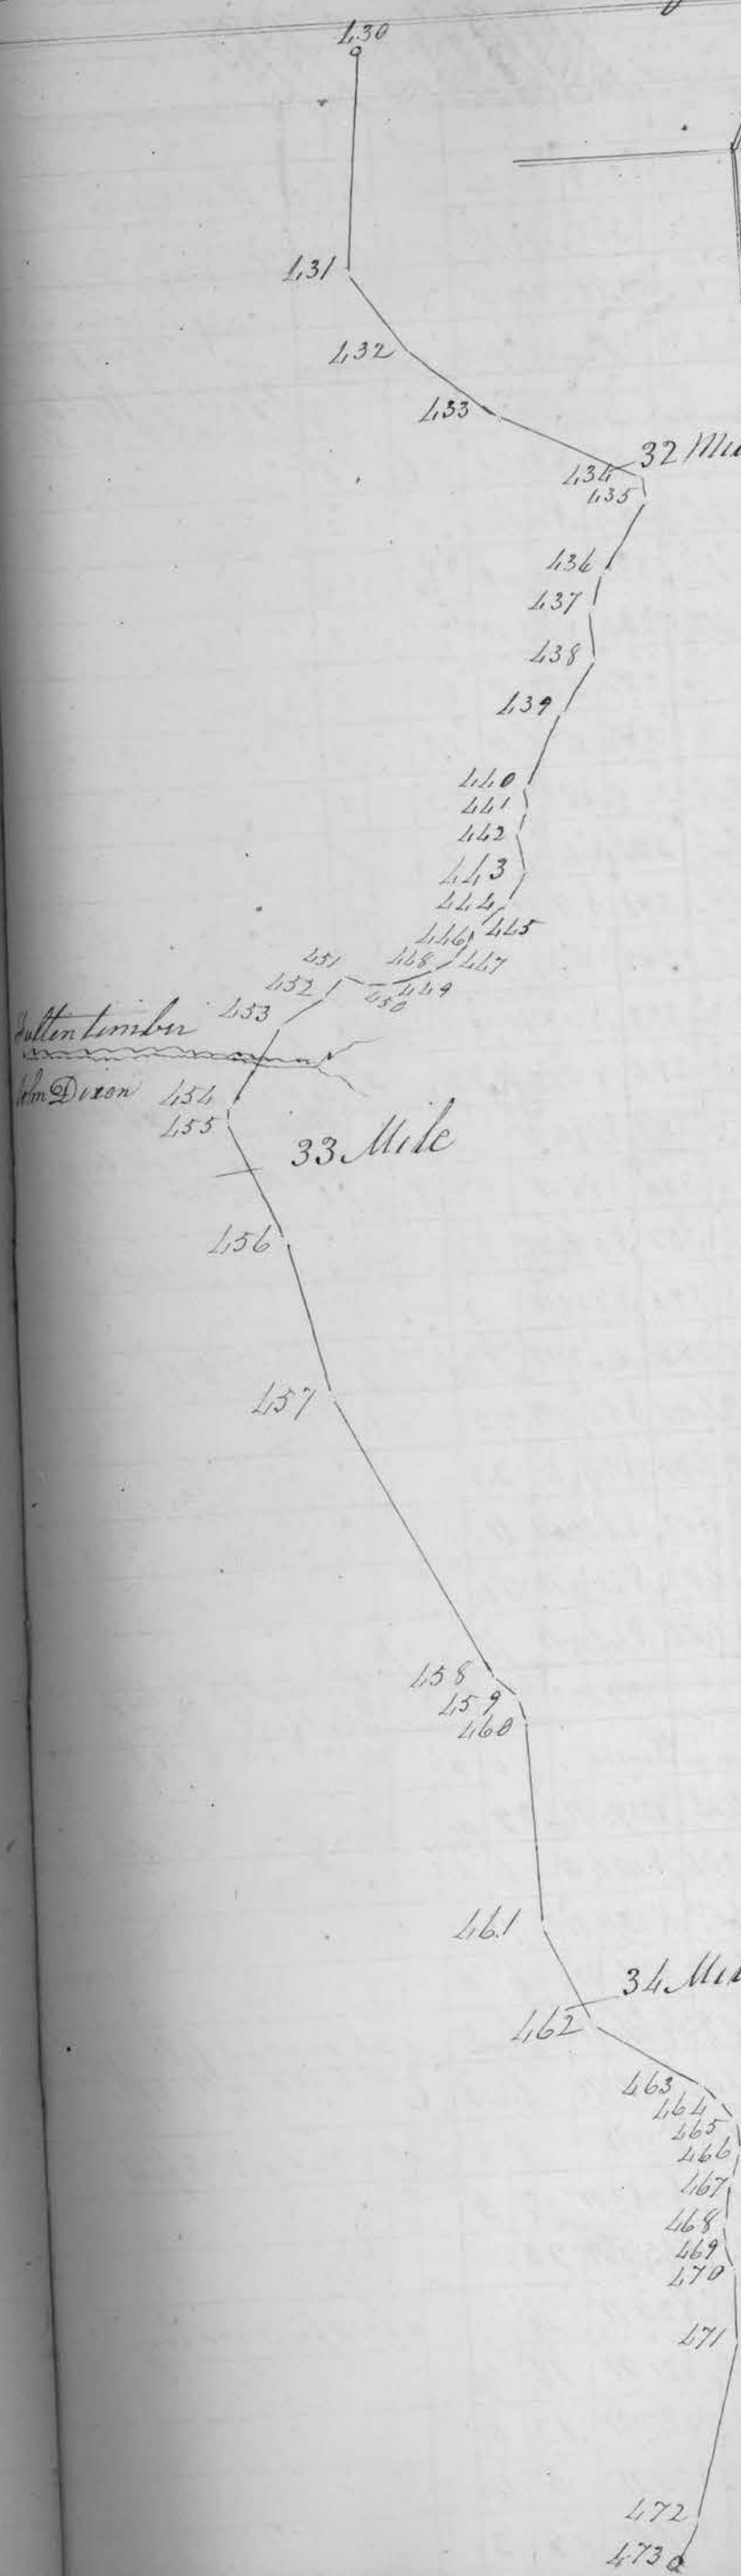 430
431
432
433
32 Mi
434
435
436
437
438
439
440
441
442
443
444
445
446
447
448
449
450
451
452
453
timber
Dixon
454
455
33 Mile
456
457
458
459
460
461
34 Mi
462
463
464
465
466
467
468
469
470
471
472
473